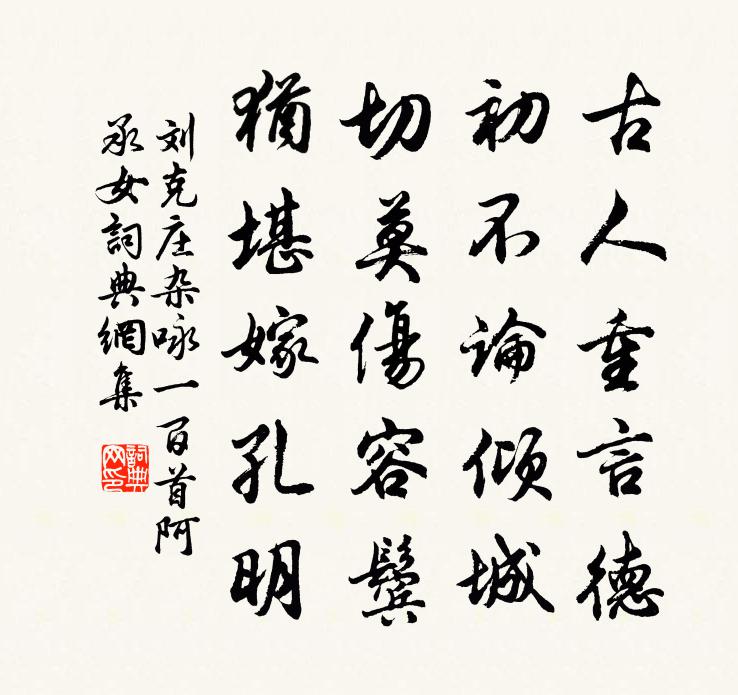 古人重言德
初不論傾城
切莫傷容鬢
猶堪嫁孔明
刘克庄杂咏一百首阿
承女詞典網集
詞典网印